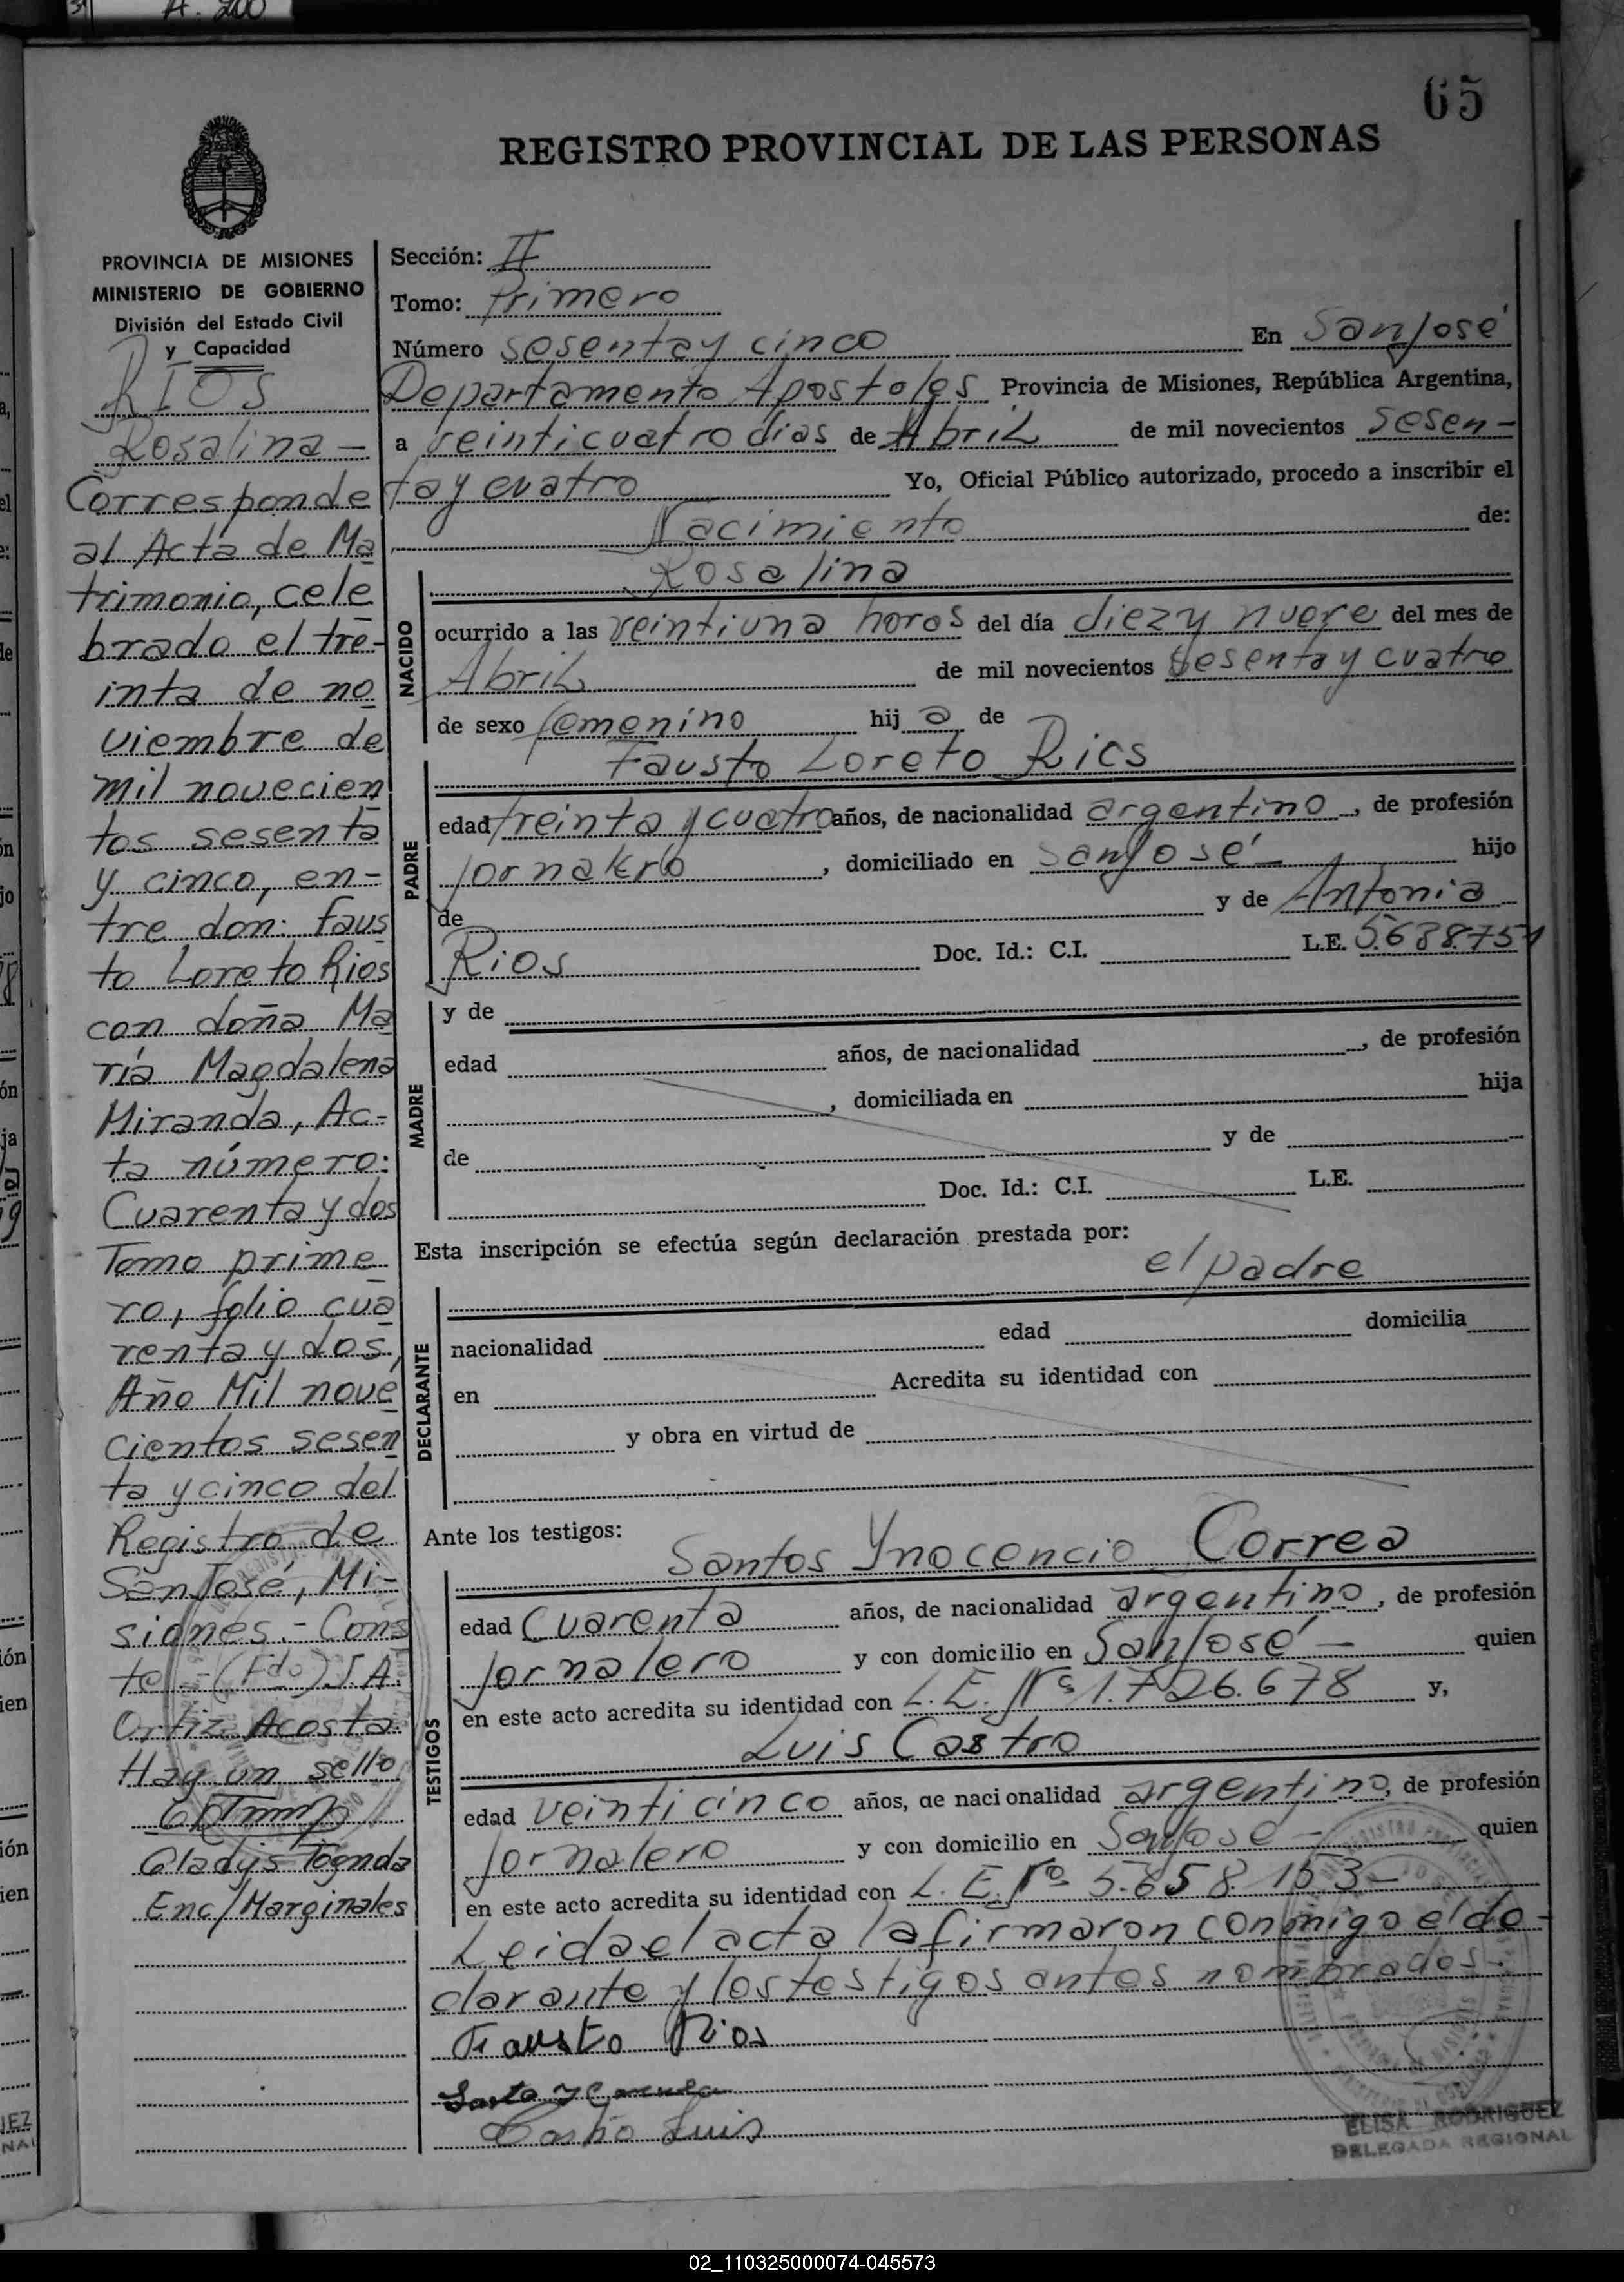 A. 200
65
REGISTRO PROVINCIAL DE LAS PERSONAS
PROVINCIA DE MISIONES
MINISTERIO DE GOBIERNO
División del Estado Civil
y Capacidad
RIOS
Rosalina -
Corresponde
al Acta de Ma
trimonio, cele
brado el tre-
inta de no
viembre de
mil novecien
tos sesenta
y cinco, en-
tre don: Faus
to Loreto Rios
con doña Ma
ría Magdalena
Miranda, Ac-
ta número:
Cuarenta y dos
Tomo prime
ro, folio cua
renta y dos,
Año Mil nove
cientos sesen
ta y cinco del
Registro de
San José, Mi-
siones.- Cons
te.-(Fdo) J.A.
Ortiz Acosta.
Hay un sello
Gladys Tognda
Enc/Marginales
Sección: II
Tomo: Primero
Número sesenta y cinco En San José
Departamento Apostoles Provincia de Misiones, República Argentina,
a veinticuatro dias de Abril de mil novecientos sesen-
ta y cuatro Yo, Oficial Público autorizado, procedo a inscribir el
Nacimiento de:
Rosalina
NACIDO
ocurrido a las veintiuna horas del día diez y nueve del mes de
Abril de mil novecientos sesenta y cuatro
de sexo femenino hij a de
Fausto Loreto Rios
PADRE
edad treinta y cuatro años, de nacionalidad argentino, de profesión
jornalero, domiciliado en San José - hijo
de y de Antonia
Rios Doc. Id.: C.I. L.E. 5.638.751
MADRE
y de
edad años, de nacionalidad , de profesión
, domiciliada en hija
de y de
Doc. Id.: C.I. L.E.
Esta inscripción se efectúa según declaración prestada por:
el padre
DECLARANTE
nacionalidad edad domicilia
en Acredita su identidad con
y obra en virtud de
Ante los testigos:
Santos Ynocencio Correa
TESTIGOS
edad Cuarenta años, de nacionalidad argentino, de profesión
jornalero y con domicilio en San José - quien
en este acto acredita su identidad con L.E. Nº 1.726.678 y,
Luis Castro
edad veinticinco años, de nacionalidad argentino, de profesión
jornalero y con domicilio en San José - quien
en este acto acredita su identidad con L.E. Nº 5.658.153-
Leida el acta la firmaron conmigo el de-
clarante y los testigos antes nombrados.
Fausto Rios
Castro Luis
ELISA RODRIGUEZ
DELEGADA REGIONAL
02_110325000074-045573